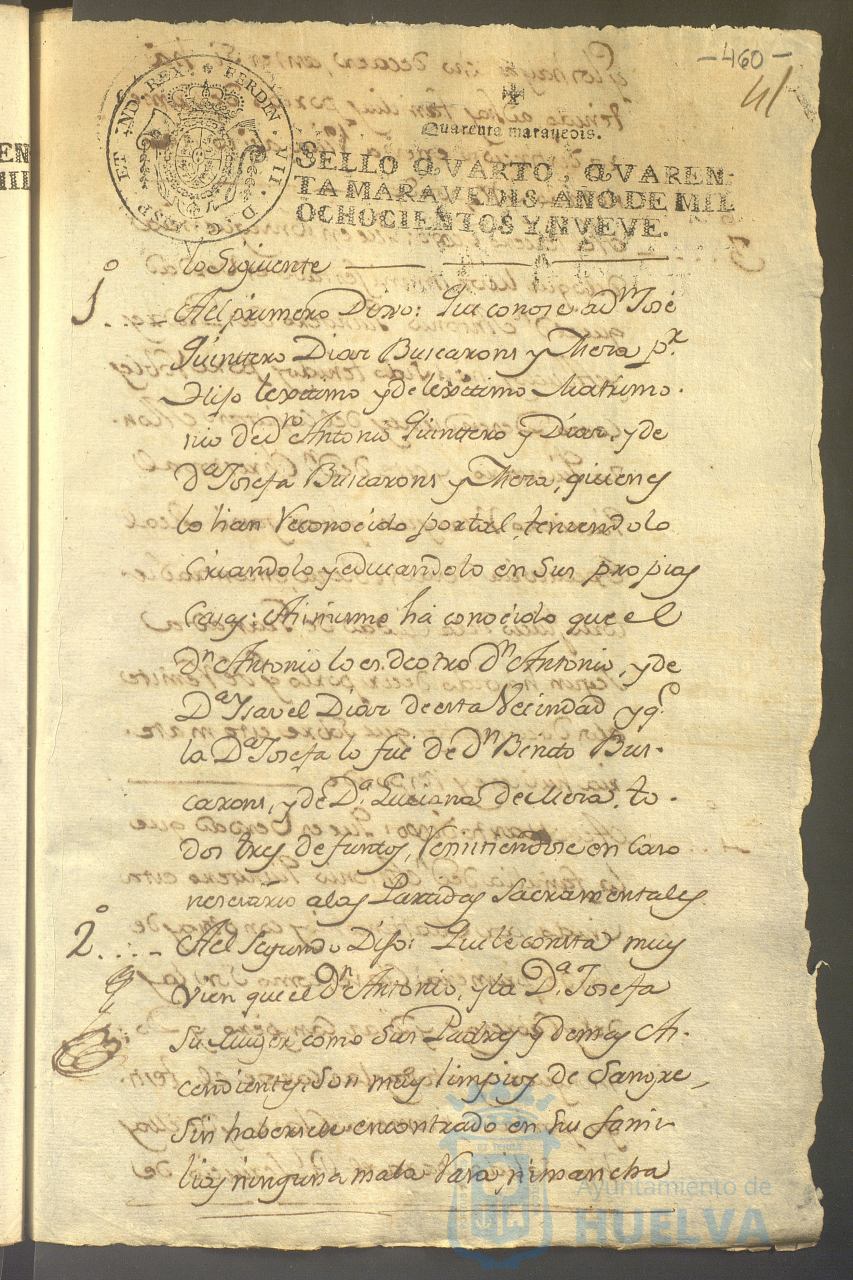 -460-
41
Quarenta maravedis.
SELLO QVARTO, QVAREN-
TA MARAVEDIS, AÑO DE MIL
OCHOCIENTOS Y NVEVE.
HISP. ET IND. REX. FERDIN. VII. D.
lo Siguiente
1º.. Al primero Dixo: Que conose a dn José
Quintero Diaz Buscarons y Mora pr
Hijo lexitimo y de lexitimo Matrimo-
nio de dn Antonio Quintero y Diaz, y de
da Josefa Buscarons y Mora, quienes
lo han Reconocido por tal, teniendolo
Criandolo y educandolo en sus propias
Casas: Asimismo há conocido que el
Dn Antonio lo es de otro Dn Antonio, y de
Da Ysavel Diaz de esta Vecindad y qe
la Da Josefa lo fue de Dn Benito Bus-
carons, y de Da Luciana de Mora, to-
dos tres defuntos, remitiendose en Caso
nesesario a las Partidas Sacramentales
2º.... Al segundo Dijo: Que le consta muy
vien que el Dn Antonio, y la Da Josefa
su muger como sus Padres y demas A-
cendientes, son muy limpios de Sangre,
sin haberse encontrado en su fami-
lias ninguna mala Raza ni mancha
Ayuntamiento de
HUELVA